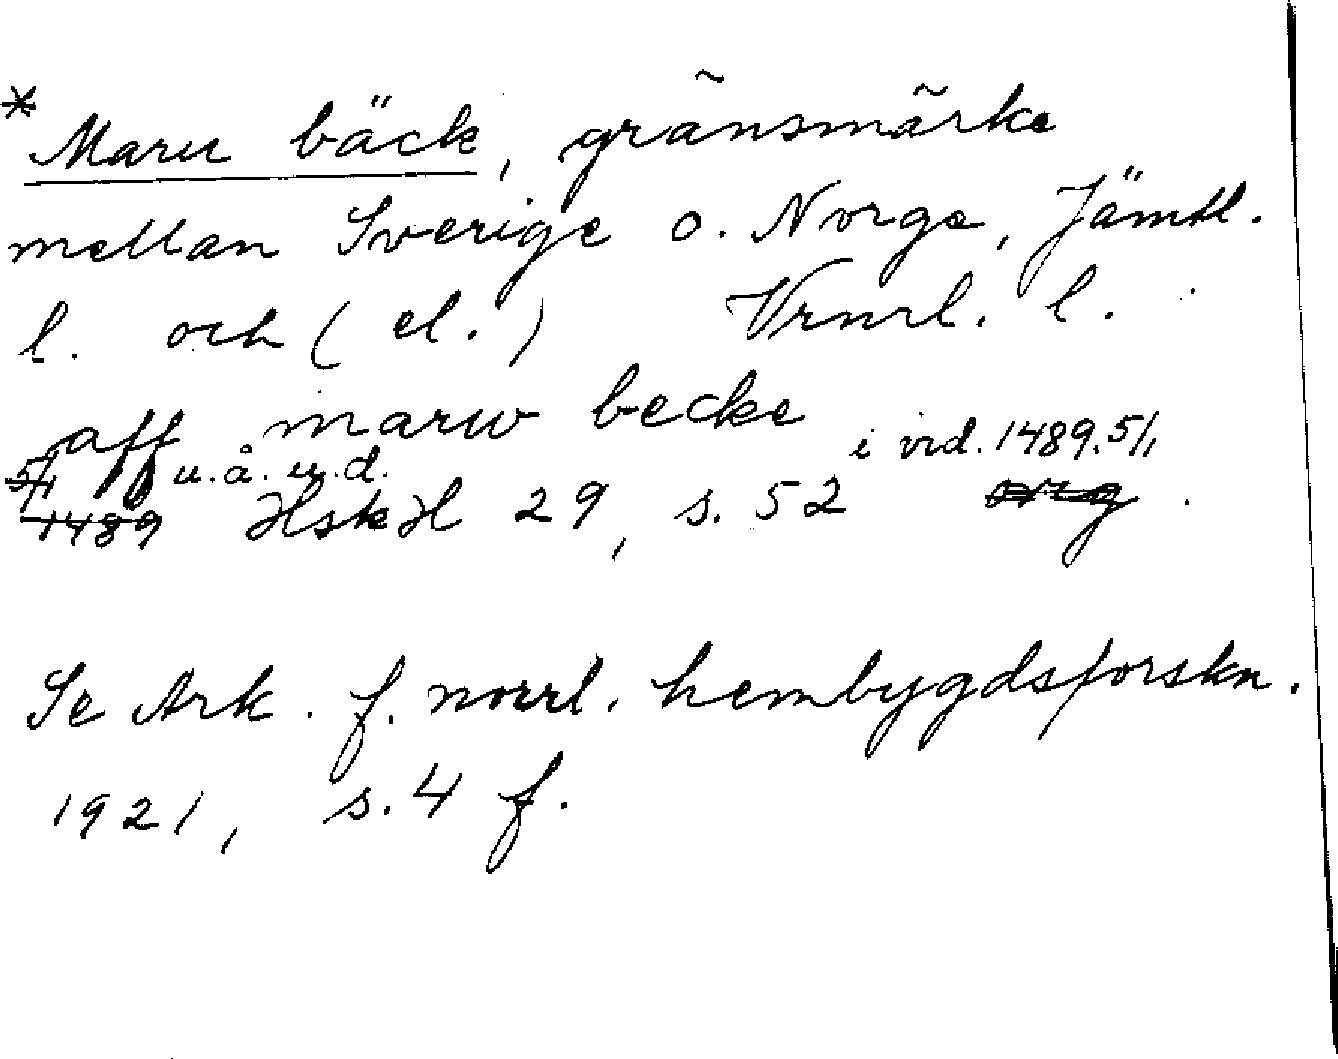 * Maru bäck, gränsmärke
mellan Sverige o. Norge, Jämtl.
l. och (el.) Vrml. l.
aff marw becke
5/1 1489 u.å.u.d. HskH 29, s. 52 i vid. 1489.5/1 orig.
Se Ark. f. norrl. hembygdsforskn.
1921, s. 4 f.